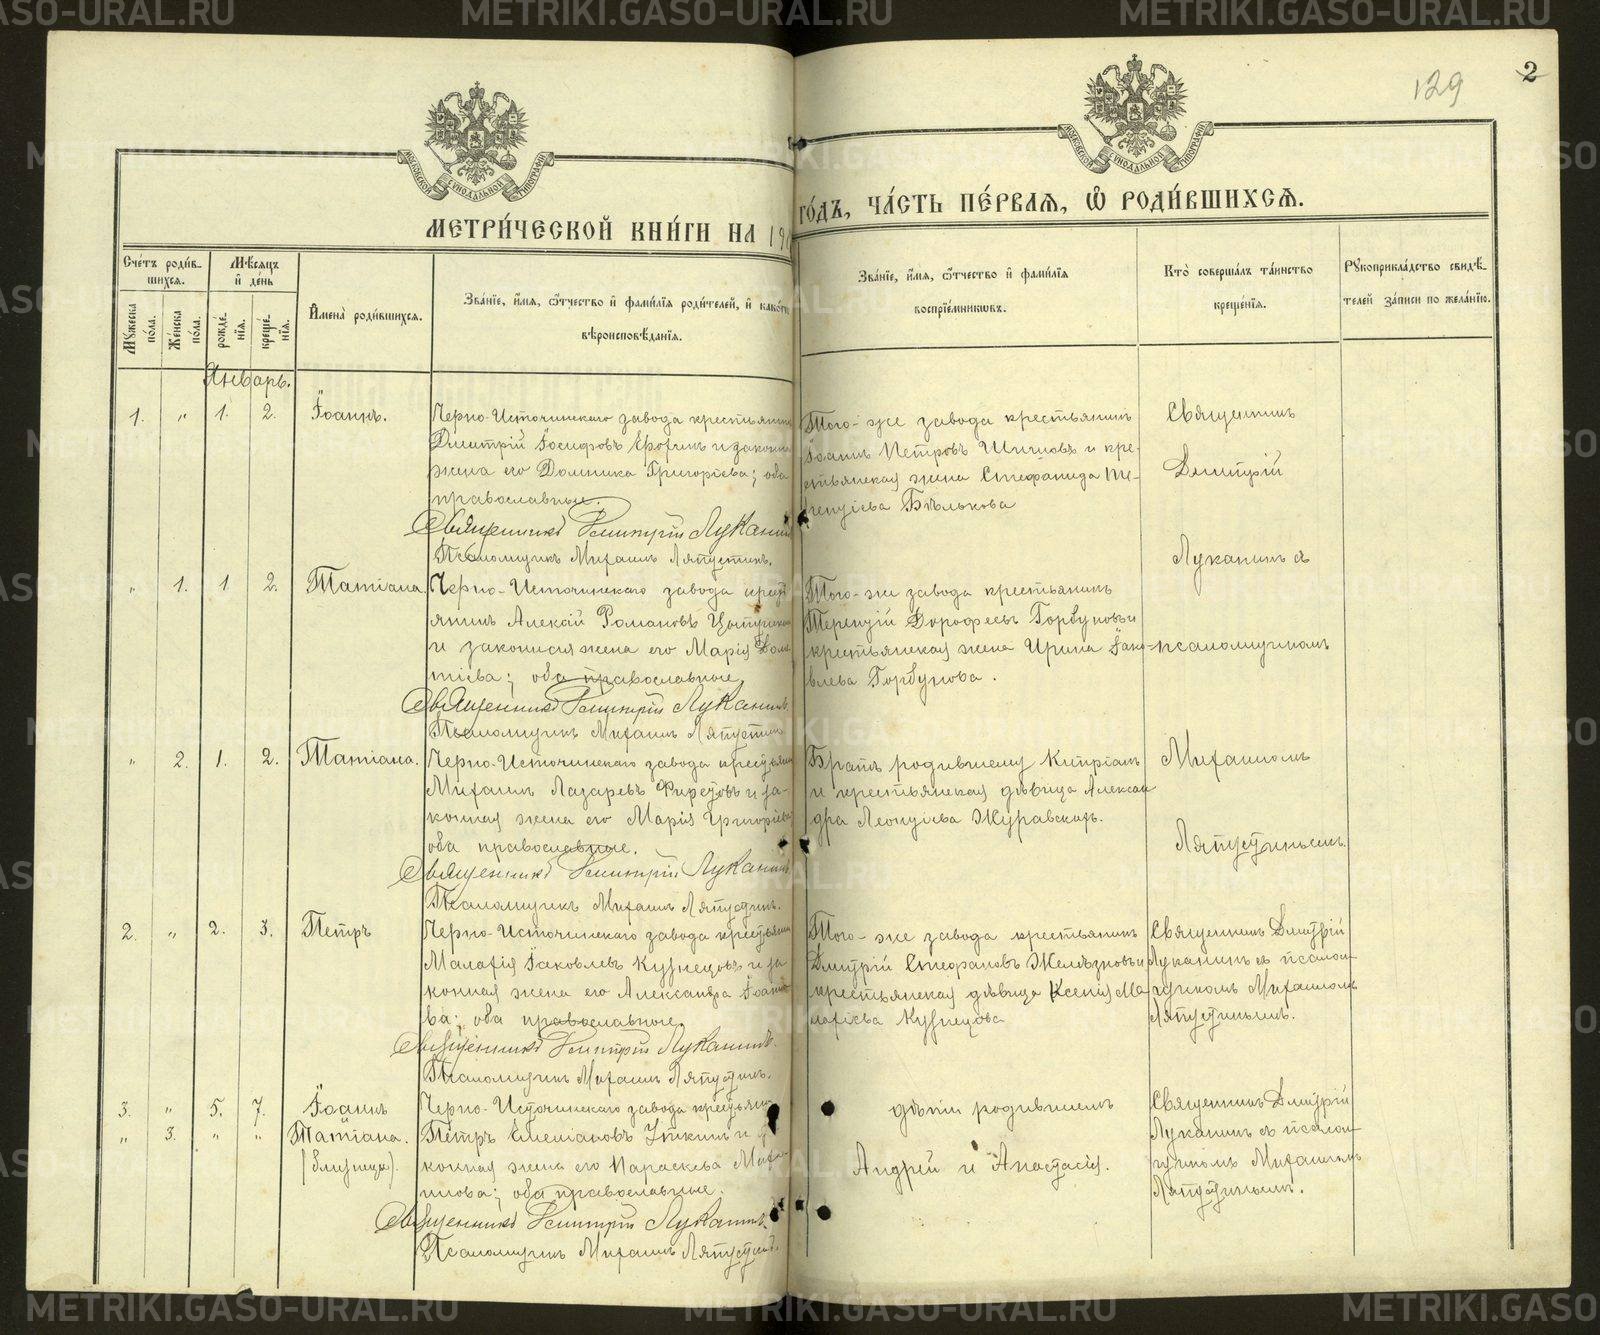 129
2
МОСКОВСКОЙ СУНОДАЛЬНОЙ ТИПОГРАФІИ
МОСКОВСКОЙ СУНОДАЛЬНОЙ ТИПОГРАФІИ
МЕТРИ́ЧЕСКОЙ КНИ́ГИ НА 19
ГО́ДЪ, ЧА́СТЬ ПЕ́РВАЯ, Ѡ РОДИ́ВШИХСЯ.
Сче́тъ роди́в-
шихся.
Му́жеска
по́ла.
Же́нска
по́ла.
Мѣ́сяцъ
и҆ де́нь
рожде́-
нїя.
креще́-
нїя.
И҆мена̀ роди́вшихся.
Зва́нїе, и҆́мя, ѻ҆́тчество и҆ фами́лїя роди́телей, и҆ како́гѡ
вѣроисповѣ́данїя.
Зва́нїе, и҆́мя, ѻ҆́тчество и҆ фами́лїя
воспрїе́мникѡвъ.
Кто̀ соверша́лъ та́инство
креще́нїя.
Рꙋкоприкла́дство свидѣ́-
телей за́писи по жела́нїю.
Январь.
1. " 1. 2. Іоаннъ.
Черно-Источинскаго завода крестьянинъ
Дмитрій Іосифовъ Ерофинъ и законная
жена его Домника Григорьева; оба
православные.
Священникъ Димитрій Луканинъ
Псаломщикъ Михаилъ Ляпустинъ.
Того-же завода крестьянинъ
Іоаннъ Петровъ и кре-
стьянская жена Стефанида Те-
рентіева Бѣлькова
Священникъ
Дмитрій
Луканинъ съ
псаломщикомъ
Михаиломъ
Ляпустинымъ.
" 1. 1 2. Татіана.
Черно-Источинскаго завода кресть
янинъ Алексій Романовъ
и законная жена его Марія
тіева; оба православные.
Священникъ Димитрій Луканинъ.
Псаломщикъ Михаилъ Ляпустинъ
Того-же завода крестьянинъ
Терентій Дорофеевъ Горбуновъ и
крестьянская жена Ирина Іако-
влева Горбунова.
" 2. 1. 2. Татіана.
Черно-Источинскаго завода крестьянинъ
Михаилъ Лазаревъ Фирсовъ и за-
конная жена его Марія Григорьева
оба православные.
Священникъ Димитрій Луканинъ
Псаломщикъ Михаилъ Ляпустинъ.
Братъ родившему Кипріанъ
и крестьянская дѣвица Алексан
дра Леонтіева Журавскаръ.
2. " 2. 3. Петръ
Черно-Источинскаго завода крестьянинъ
Малафій Іаковлевъ Кузнецовъ и за
конная жена его Александра Іоанно
ва; оба православные.
Священникъ Димитрій Луканинъ.
Псаломщикъ Михаилъ Ляпустинъ.
Того-же завода крестьянинъ
Дмитрій Стефановъ Желѣзновъ и
крестьянская дѣвица Ксенія Ма-
лафіева Кузнецова
Священникъ Дмитрій
Луканинъ съ псалом
щикомъ Михаиломъ
Ляпустинымъ.
3. " 5. 7. Іоаннъ
" 3. " " Татіана.
(близнецы).
Черно-Источинскаго завода крестьянинъ
Петръ Емеліановъ Уткинъ и за
конная жена его Параскева Миха-
илова; оба православные.
Священникъ Димитрій Луканинъ.
Псаломщикъ Михаилъ Ляпустинъ.
дѣти родившемъ
Андрей и Анастасія.
Священникъ Дмитрій
Луканинъ съ псалом
щикомъ Михаиломъ
Ляпустинымъ.
METRIKI.GASO-URAL.RU